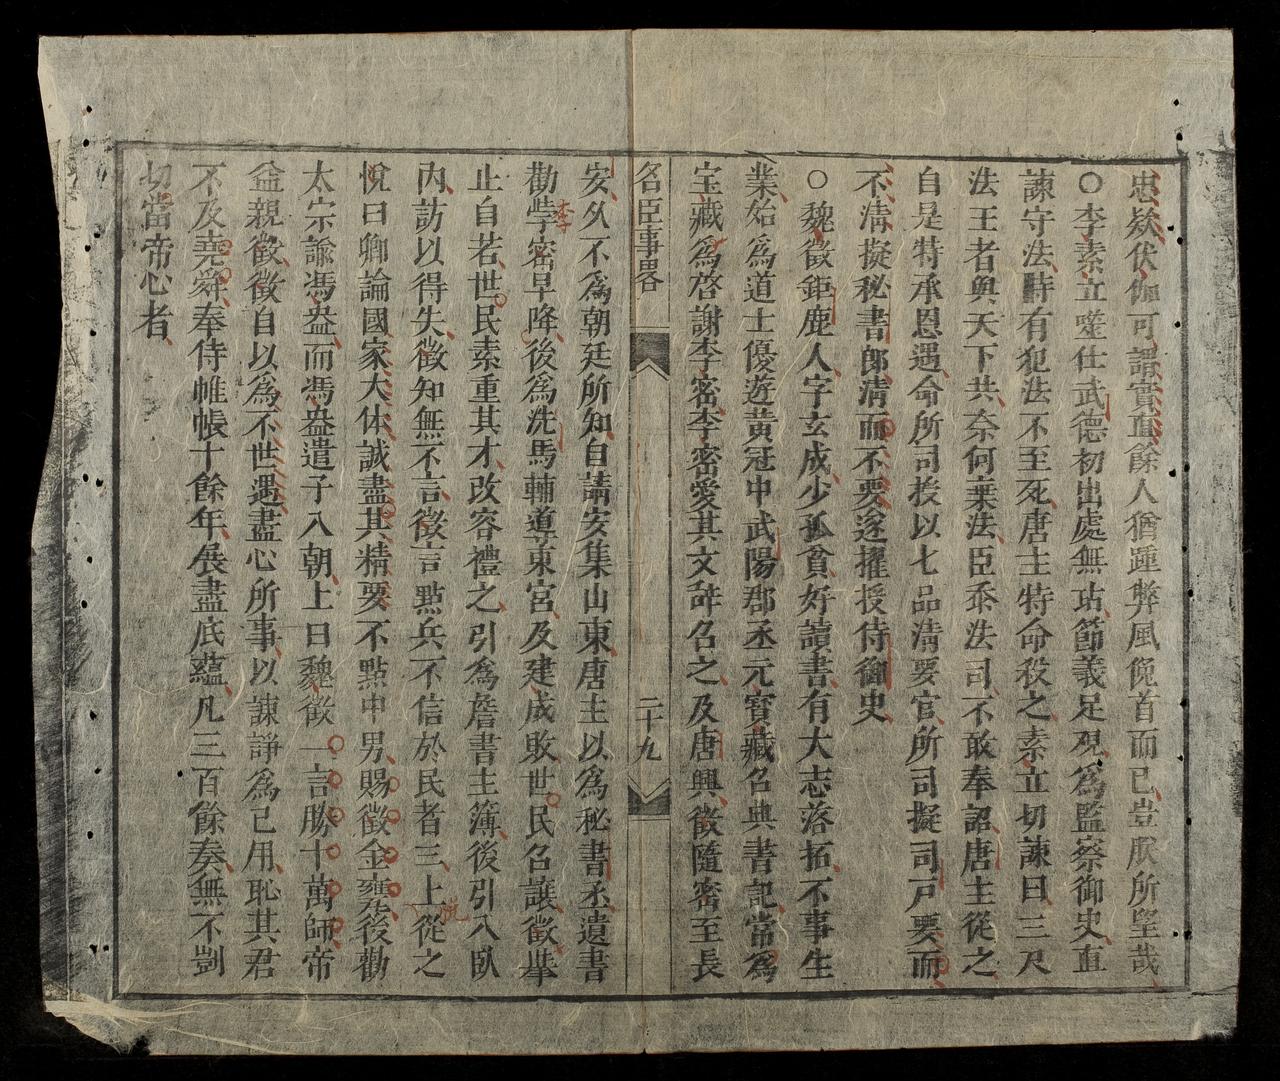 忠欵伏伽可謂實直餘人猶踵弊風俛首而已豈朕所望哉
○李素立嗟仕武德初出處無玷節義足观為監察御史直
諫守法時有犯法不至死唐主特命殺之素立切諫曰三尺
法王者與天下共奈何棄法臣忝法司不敢奉詔唐主從之
自是特承恩遇命所司授以七品清要官所司擬司戸要而
不清擬秘書郎清而不要遂擢授侍御史
○魏徵鉅鹿人字玄成少孤貧好讀書有大志落拓不事生
業始為道士優遊黃冠中武陽郡丞元寶藏召典書記常為
宝藏為啓謝李密李密愛其文辞召之及唐興徵隨密至長
名臣事畧
二十九
安久不為朝廷所知自請安集山東唐主以為秘書丞遺書
勸李斈密早降後為洗馬輔導東宮及建成敗世民召讓徵举
止自若世民素重其才改容禮之引為詹書主簿後引入臥
內訪以得失徵知無不言徵言點兵不信於民者三上從之
悅曰卿論國家大体誠盡其精要不點中男賜徵金甕後勸
太宗諭馮盎而馮盎遣子入朝上曰魏徵一言勝十萬師帝
益親徵徵自以為不世遇盡心所事以諫諍為己用恥其君
不及堯舜奉侍帷帳十餘年展盡底蘊凡三百餘奏無不剴
切當帝心者